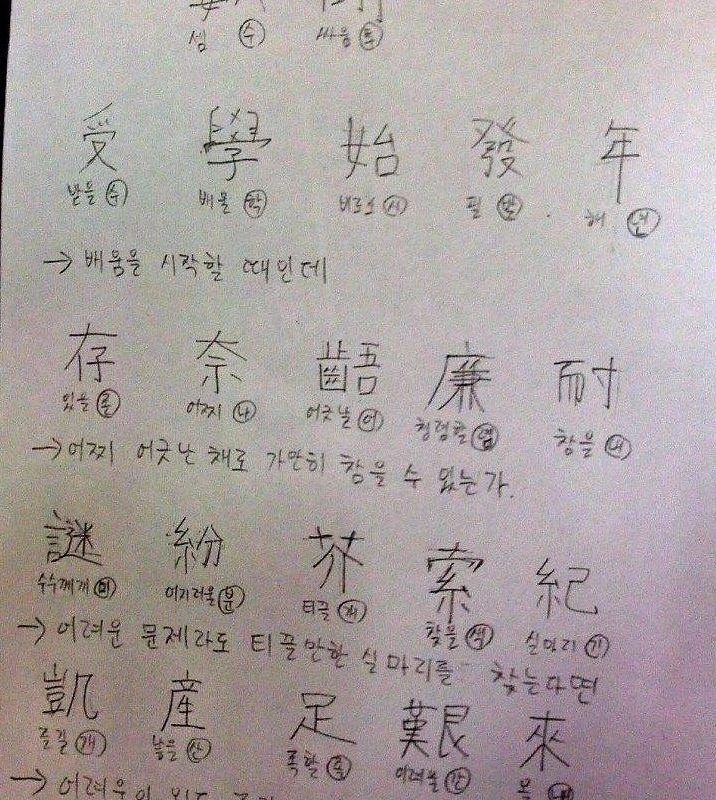 셈 수 싸움 투
受 學 始 發 年
받을 수 배울 학 비로소 시 필 발 . 해 년
→ 배움을 시작할 때인데
存 奈 齬 廉 耐
있을 존 어찌 나 어긋날 어 청렴할 염 참을 내
→ 어찌 어긋난 채로 가만히 참을 수 있는가.
謎 紛 芥 索 紀
수수께끼 미 어지러울 분 티끌 개 찾을 색 실마리 기
→ 어려운 문제라도 티끌만한 실마리를 찾는다면
凱 産 足 艱 來
즐길 개 낳을 산 족할 족 어려울 간 올 래
→ 어려움의